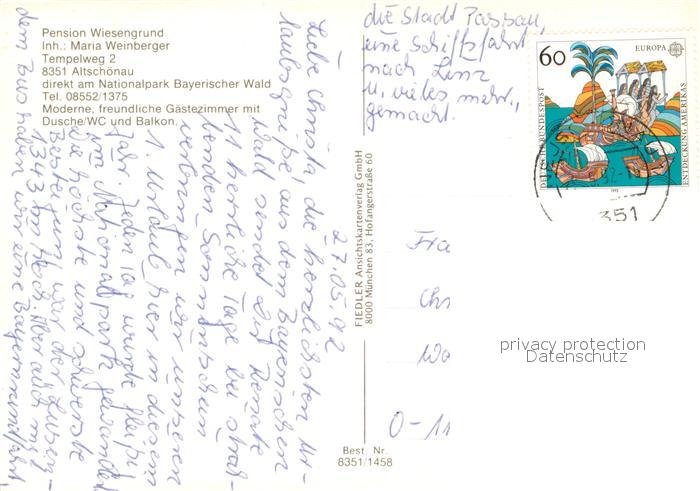 Pension Wiesengrund
Inh.: Maria Weinberger
Tempelweg 2
8351 Altschönau
direkt am Nationalpark Bayerischer Wald
Tel. 08552/1375
Moderne, freundliche Gästezimmer mit
Dusche/WC und Balkon.
27.05.92
Liebe Christa, die herzlichsten Ur-
laubsgrüße aus dem Bayerischen
Wald sendet Dir Renate
11 herrliche Tage bei strah-
lenden Sonnenschein
verbringen wir unseren
1. Urlaub hier in diesem
Jahr. Jeden Tag wurde fleißig
im Nationalpark gewandert
die höchste und schwerste
Besteigung war der Lusen -
1343 m hoch. Aber auch mit
dem Bus haben wir eine Bayernrundfahrt,
die Stadt Passau,
eine Schiffsfahrt
nach Linz
u. vieles mehr,
gemacht.
FIEDLER Ansichtskartenverlag GmbH
8000 München 83, Hofangerstraße 60
Best. Nr.
8351/1458
60
EUROPA
CEPT
DEUTSCHE BUNDESPOST
ENTDECKUNG AMERIKAS
1992
351
Fra
Ch
O-11
privacy protection
Datenschutz